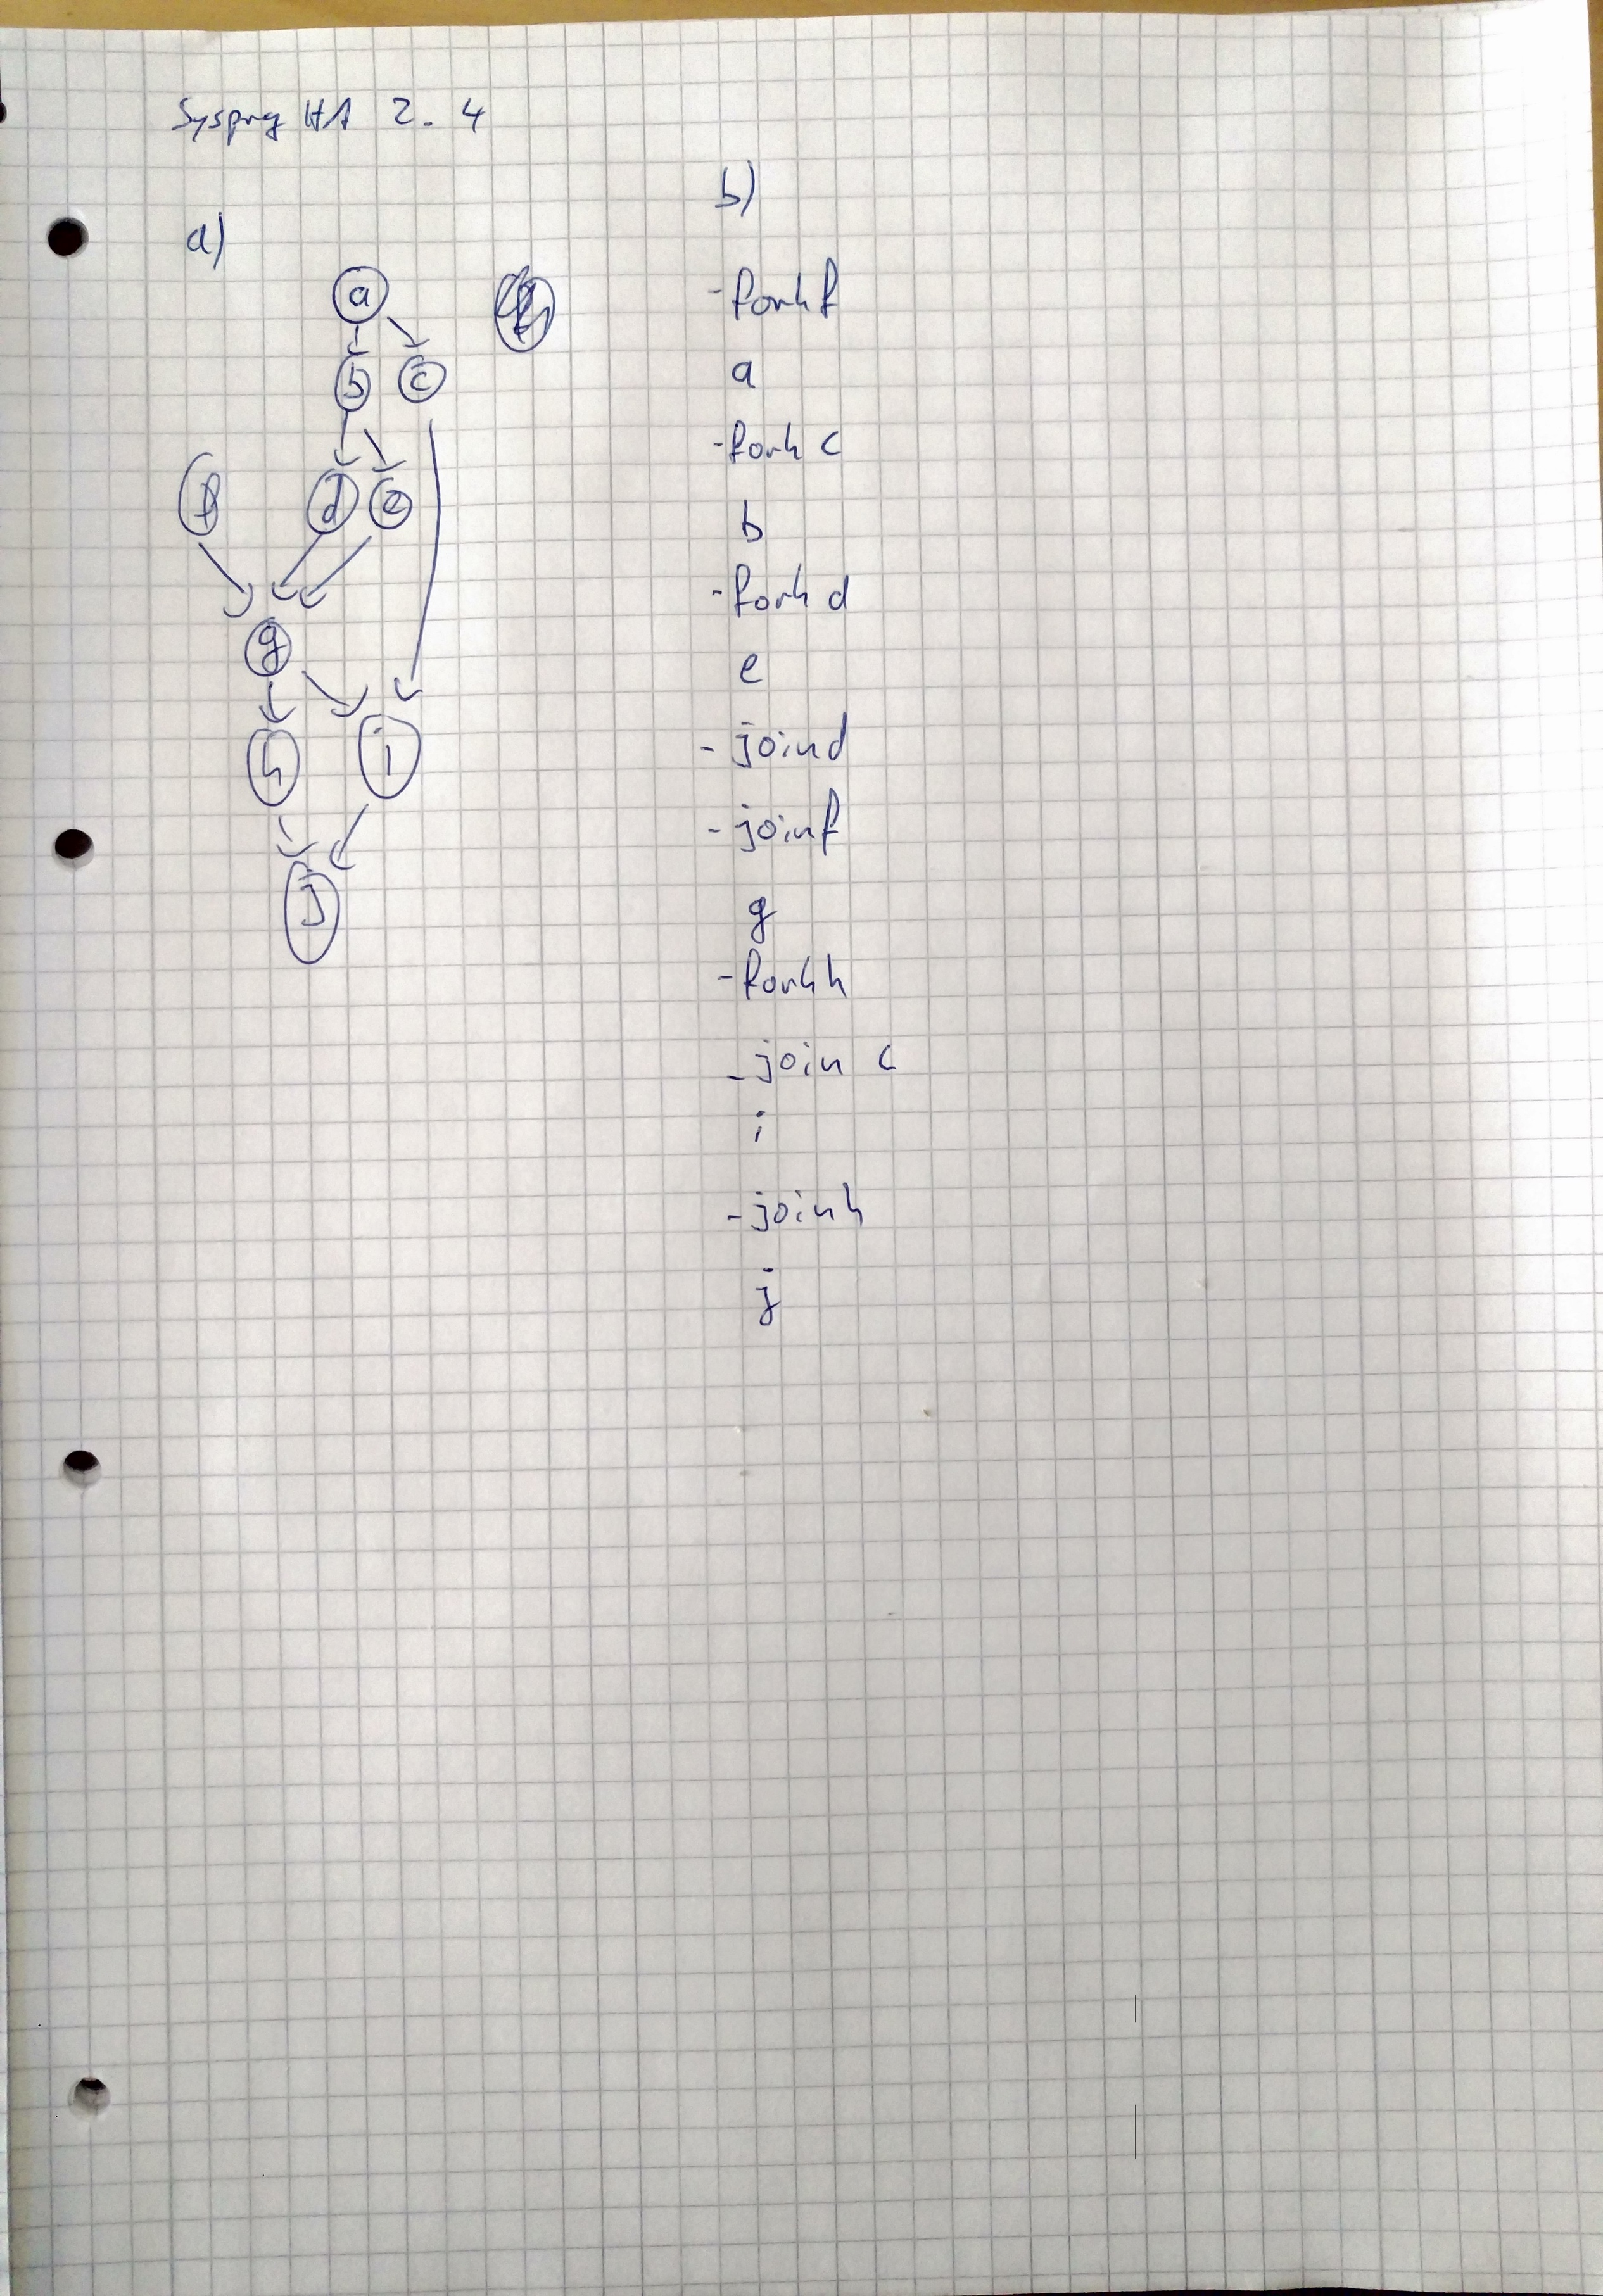 Sysprg HA 2. 4
a)
a
b c
f d e
g
h i
j
b)
- fork f
a
- fork c
b
- fork d
e
- join d
- join f
g
- fork h
- join c
i
- join h
j